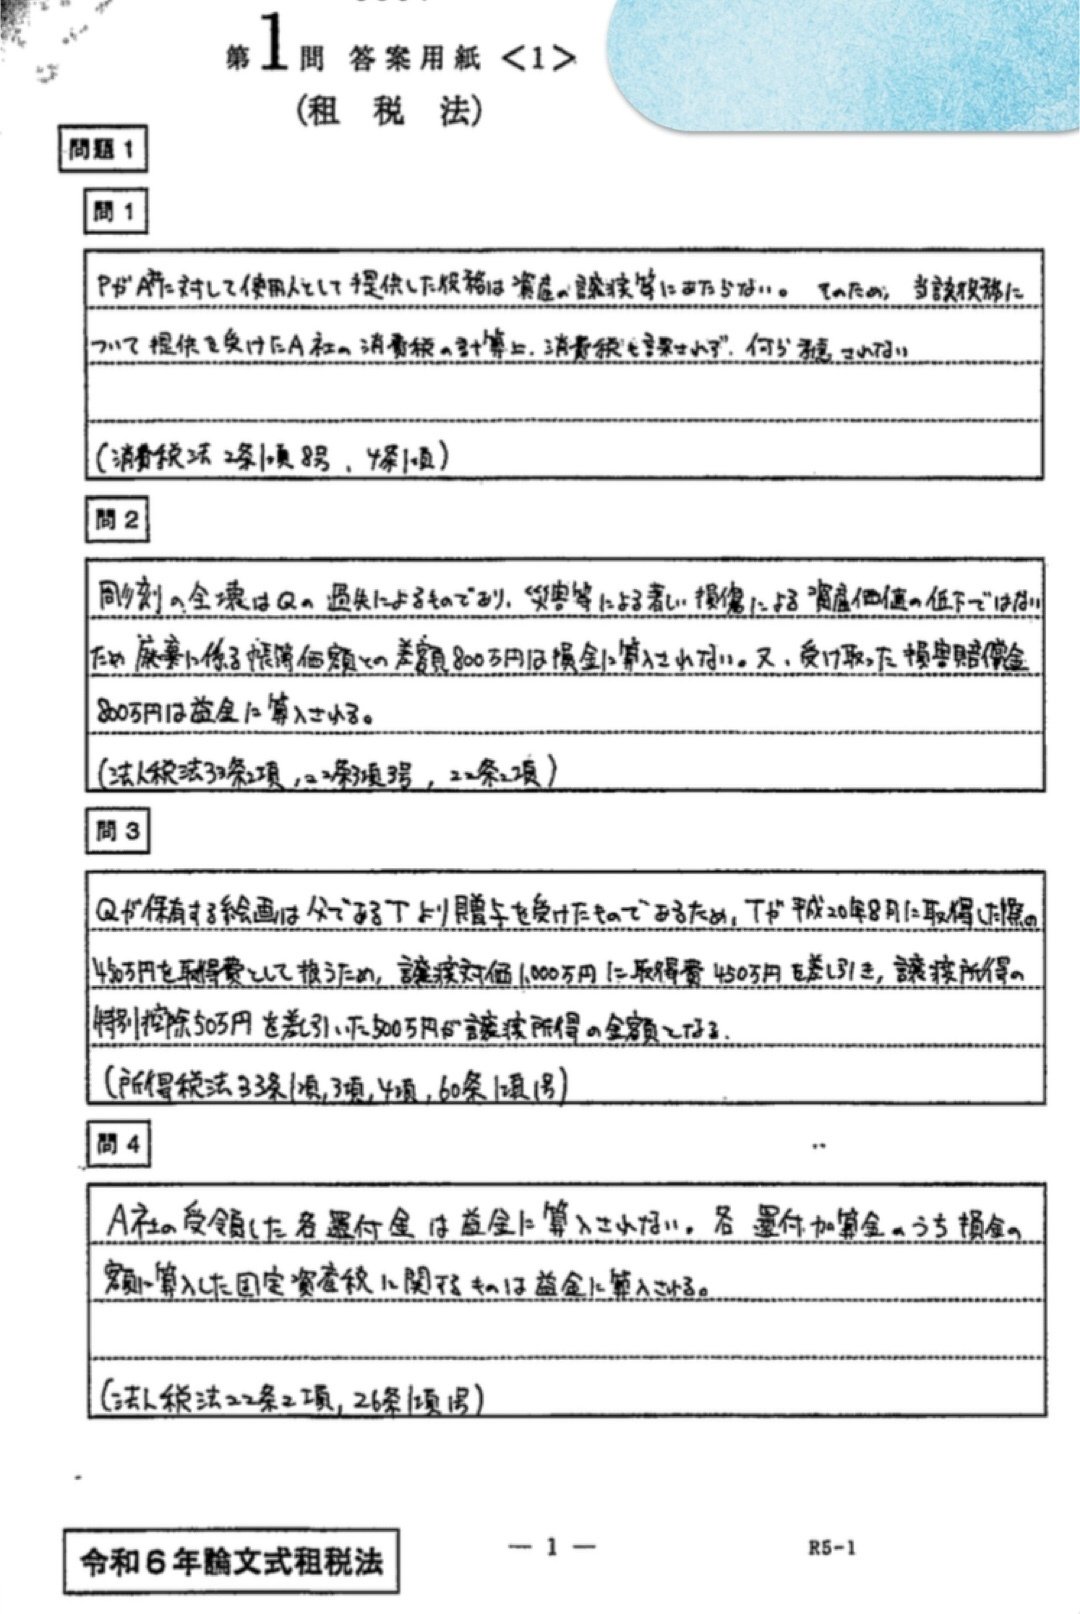 第1問 答案用紙 <1>
(租税法)
問題1
問1
PがA社に対して使用人として提供した役務は資産の譲渡等にあたらない。そのため、当該役務に
ついて提供を受けたA社の消費税の計算上、消費税も課されず、何ら考慮されない
(消費税法2条1項8号、4条1項)
問2
彫刻の全壊はQの過失によるものであり、災害等による著しい損傷による資産価値の低下ではない
ため廃棄に係る帳簿価額との差額800万円は損金に算入されない。又、受け取った損害賠償金
800万円は益金に算入される。
(法人税法33条2項,22条3項3号,22条2項)
問3
Qが保有する絵画は父であるTより贈与を受けたものであるため、Tが平成20年8月に取得した際の
450万円を取得費として扱うため、譲渡対価1,000万円に取得費450万円を差し引き、譲渡所得の
特別控除50万円を差し引いた500万円が譲渡所得の金額となる.
(所得税法33条1項,3項,4項,60条1項1号)
問4
A社の受領した各還付金は益金に算入されない。各還付加算金のうち損金の
額に算入した固定資産税に関するものは益金に算入される。
(法人税法22条2項,26条1項1号)
令和6年論文式租税法
— 1 —
R5-1